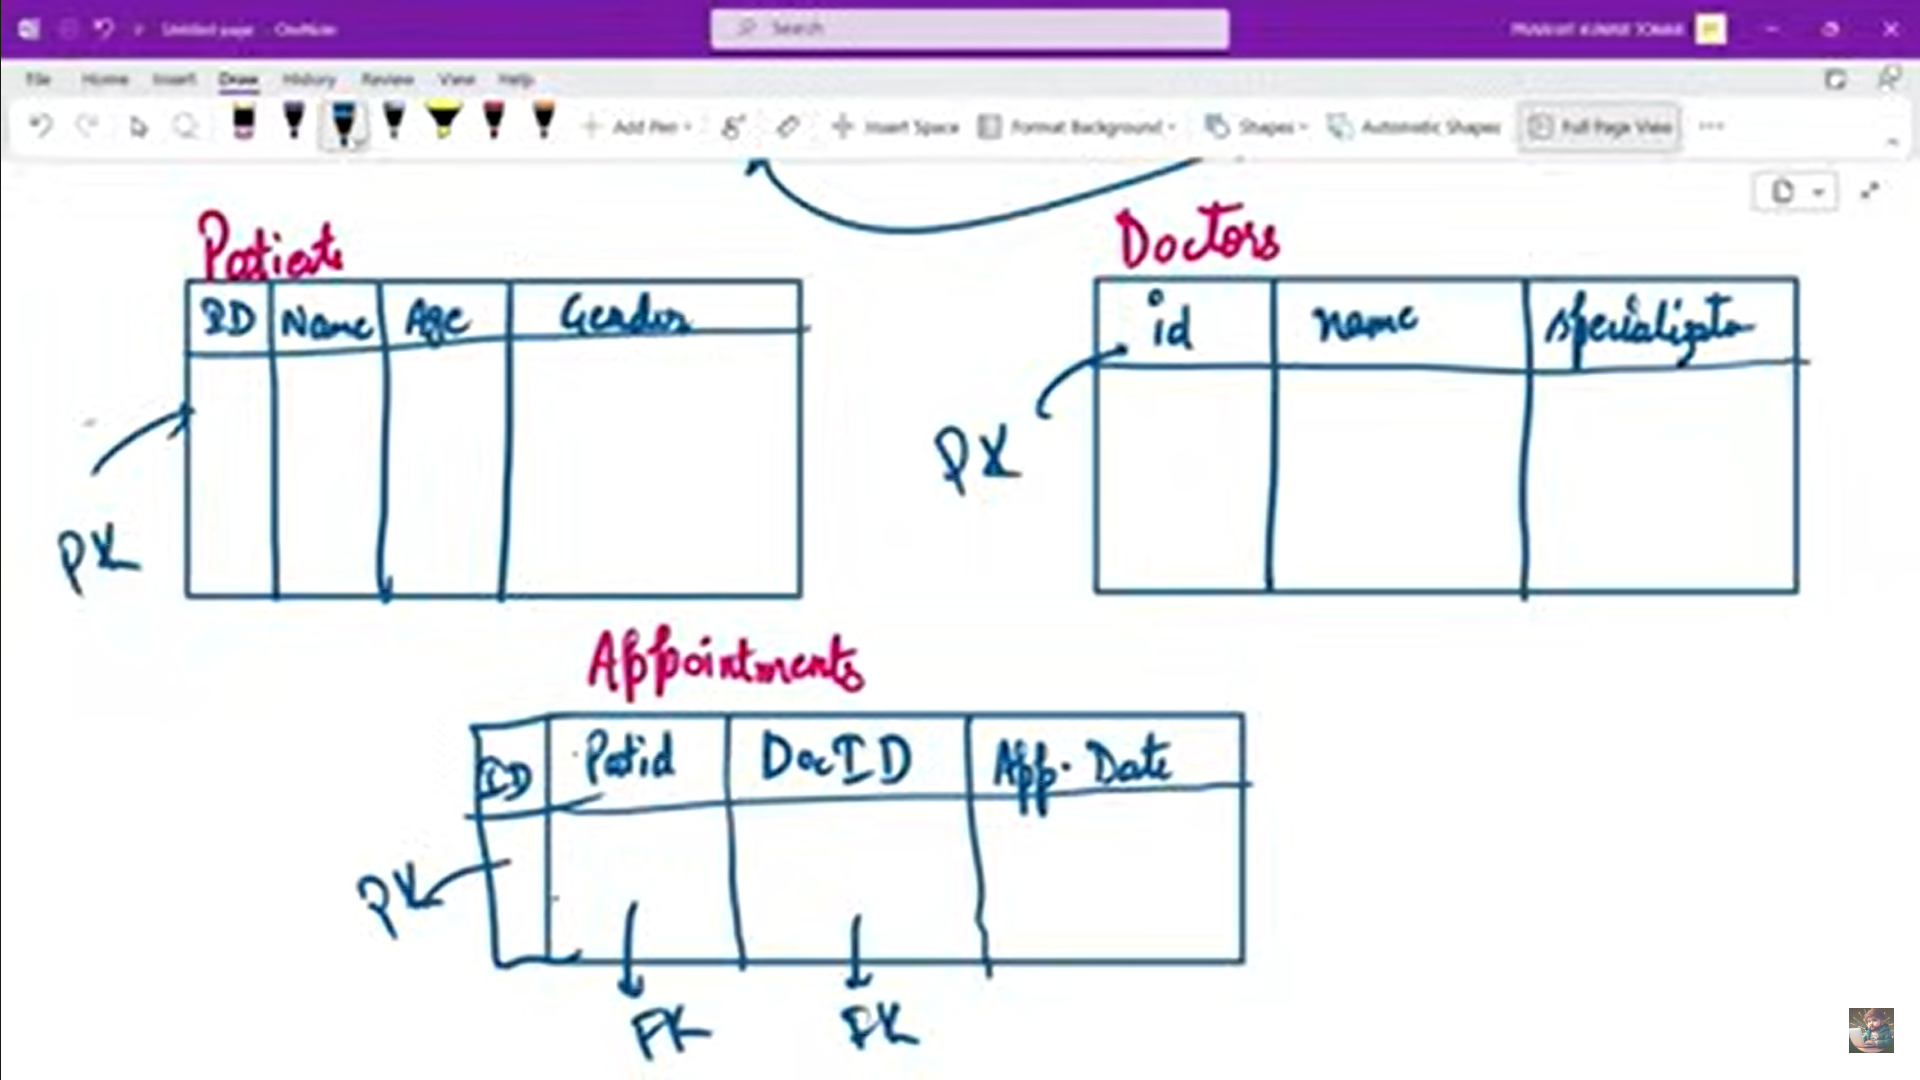 Untitled page - OneNote
Search
File Home Insert Draw History Review View Help
Add Pen Insert Space Format Background Shapes Automatic Shapes Full Page View
Patients
Doctors
ID Name Age Gender
id name
PK
PK
Appointments
ID Patid DocID App. Date
PK
FK FK